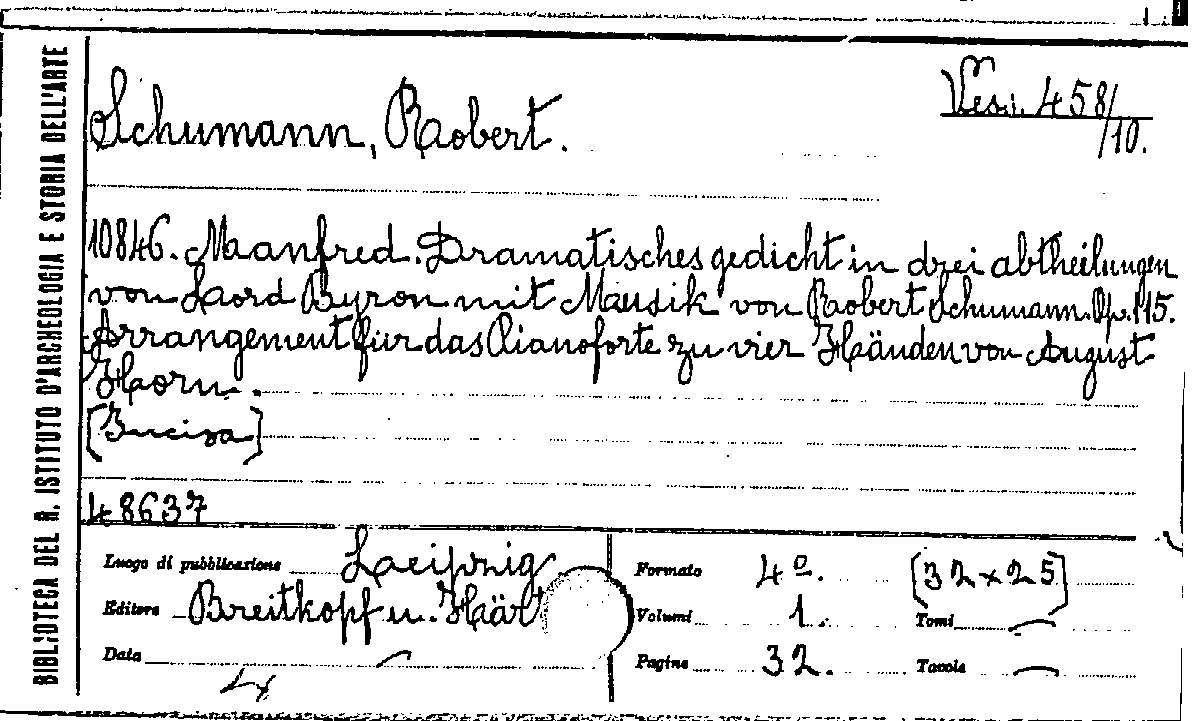 BIBLIOTECA DEL R. ISTITUTO D'ARCHEOLOGIA E STORIA DELL'ARTE
Vesi. 458/10.
Schumann, Robert.
10846. Manfred. Dramatisches gedicht in drei abtheilungen
von Lord Byron mit Musik von Robert Schumann. Op. 115.
Arrangement für das Pianoforte zu vier Händen von August
Horn.
[Incisa]
48637
Luogo di pubblicazione Leipzig
Editore Breitkopf u. Här
Data —
Formato 4º. [32 x 25]
Volumi 1. Tomi —
Pagine 32. Tavole —